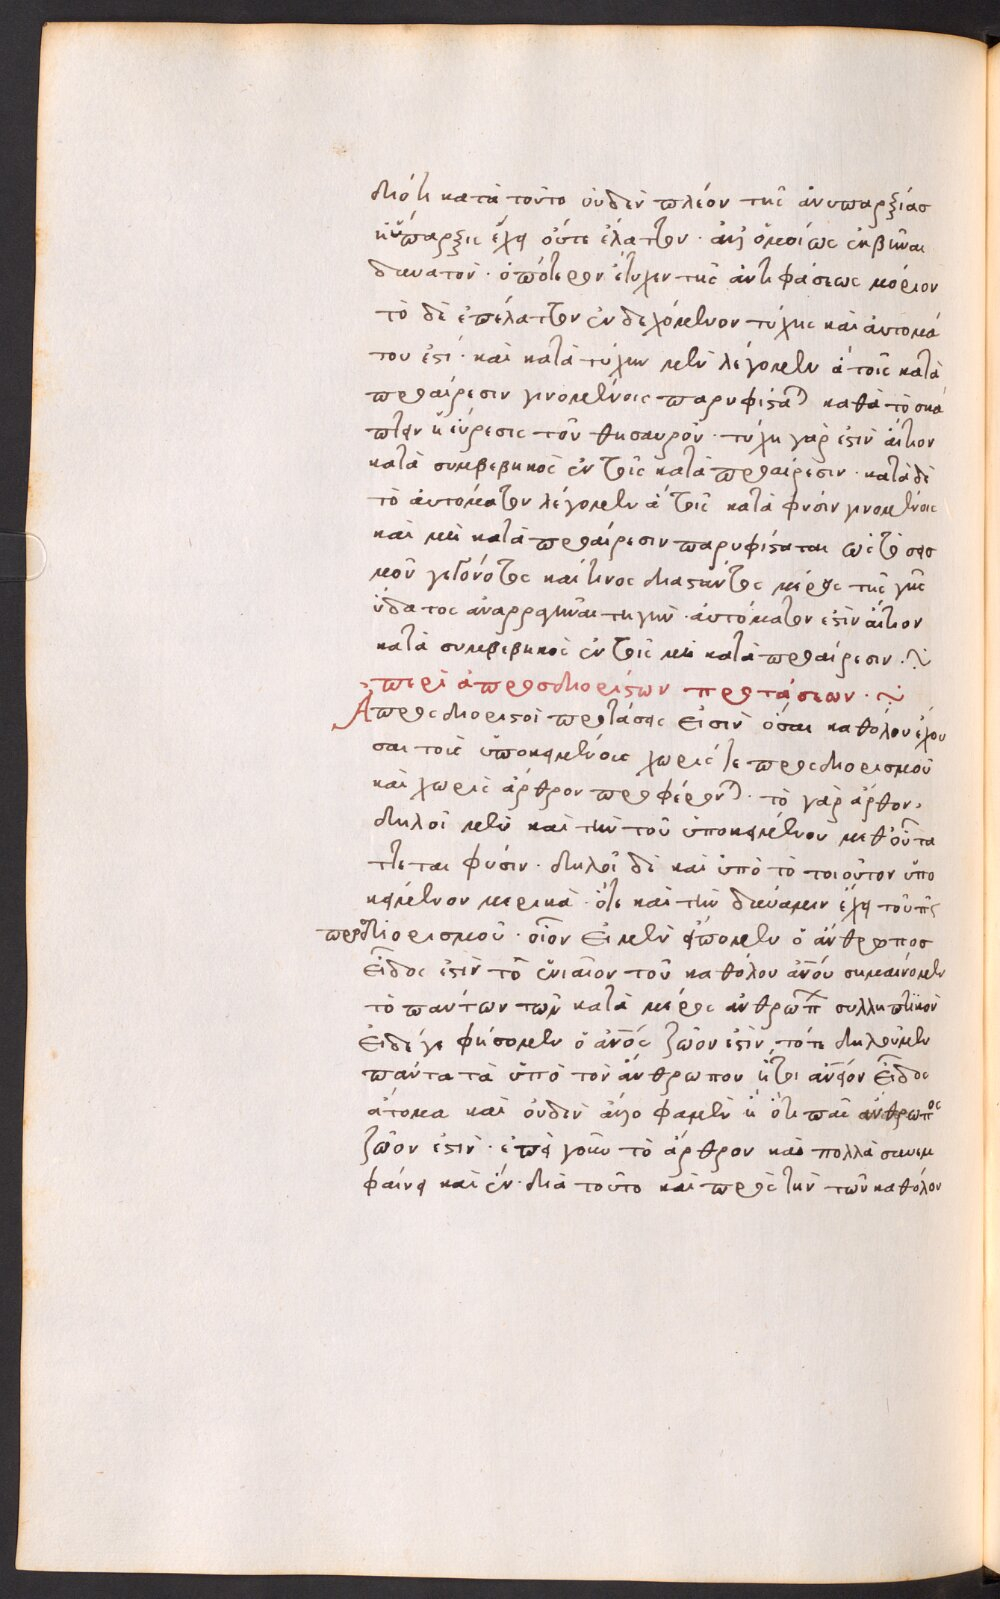 διότι κατὰ τοῦτο οὐδὲν πλέον τῆς ἀνυπαρξίας
ἡ ὕπαρξις ἔχει οὔτε ἔλαττον · ἀλλ' ὁμοίως ἐκβῆναι
δυνατὸν · ὁπότερον ἔτυχεν τῆς ἀντιφάσεως μόριον
τὸ δὲ ἐπέλαττον ἐνδεχόμενον τύχης καὶ αὐτομά
του ἐστί · καὶ κατὰ τύχην μὲν λέγομεν ἃ τοῖς κατὰ
προαίρεσιν γινομένοις παρυφίσταται καθὰ τὸ σκά
πτειν ἡ εὕρεσις τοῦ θησαυροῦ · τύχη γάρ ἐστιν αἴτιον
κατὰ συμβεβηκὸς ἐν τοῖς κατὰ προαίρεσιν · κατὰ δὲ
τὸ αὐτόματον λέγομεν ἃ τοῖς κατὰ φύσιν γινομένοις
καὶ μὴ κατὰ προαίρεσιν παρυφίσταται ὡς τὸ σεισ
μοῦ γεγονότος καί τινος διαστάντος μέρους τῆς γῆς
ὕδατος ἀναρραγῆναι πηγήν · αὐτόματον ἐστὶν αἴτιον
κατὰ συμβεβηκὸς ἐν τοῖς μὴ κατὰ προαίρεσιν ·
περὶ ἀπροσδιορίστων προτάσεων ·
Ἀπροσδιόριστοι προτάσεις εἰσὶν ὅσαι καθόλου ἔχου
σαι τοὺς ὑποκειμένους χωρίς τε προσδιορισμοῦ
καὶ χωρὶς ἄρθρου προφέρονται · τὸ γὰρ ἄρθρον,
δηλοῖ μὲν καὶ τὴν τοῦ ὑποκειμένου μεθ' οὗ τά
ττεται φύσιν · δηλοῖ δὲ καὶ ὑπὸ τὸ τοιοῦτον ὑπο
κείμενον μερικὰ · ὅτε καὶ τὴν δύναμιν ἔχει τοῦ πᾶς
προσδιορισμοῦ · οἷον εἰ μὲν εἴπομεν ὁ ἄνθρωπος
εἶδος ἐστὶν τὸ ἑνιαῖον τοῦ καθόλου ἀνου σημαίνομεν
τὸ πάντων τῶν κατὰ μέρος ἀνθρώπων συλληπτικόν
εἰ δέ γε φήσομεν ὁ ἀνος ζῶον ἐστὶν, τότε δηλοῦμεν
πάντα τὰ ὑπὸ τὸν ἄνθρωπον ἤτοι ἀνειον εἶδος
ἄτομα καὶ οὐδὲν ἄλλο φαμὲν ἢ ὅτι πᾶς ἄνθρωπος
ζῶον ἐστὶν · ἐπεὶ γοῦν τὸ ἄρθρον καὶ πολλὰ συνεμ
φαίνει καὶ ἕν · διὰ τοῦτο καὶ πρὸς τὴν τῶν καθόλου